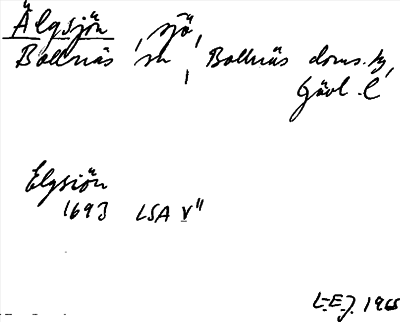 Älgsjön, sjö,
Bollnäs sn, Bollnäs doms.
Gävl. l
Elgsiön
1693 LSA V"
L-E.J. 1965